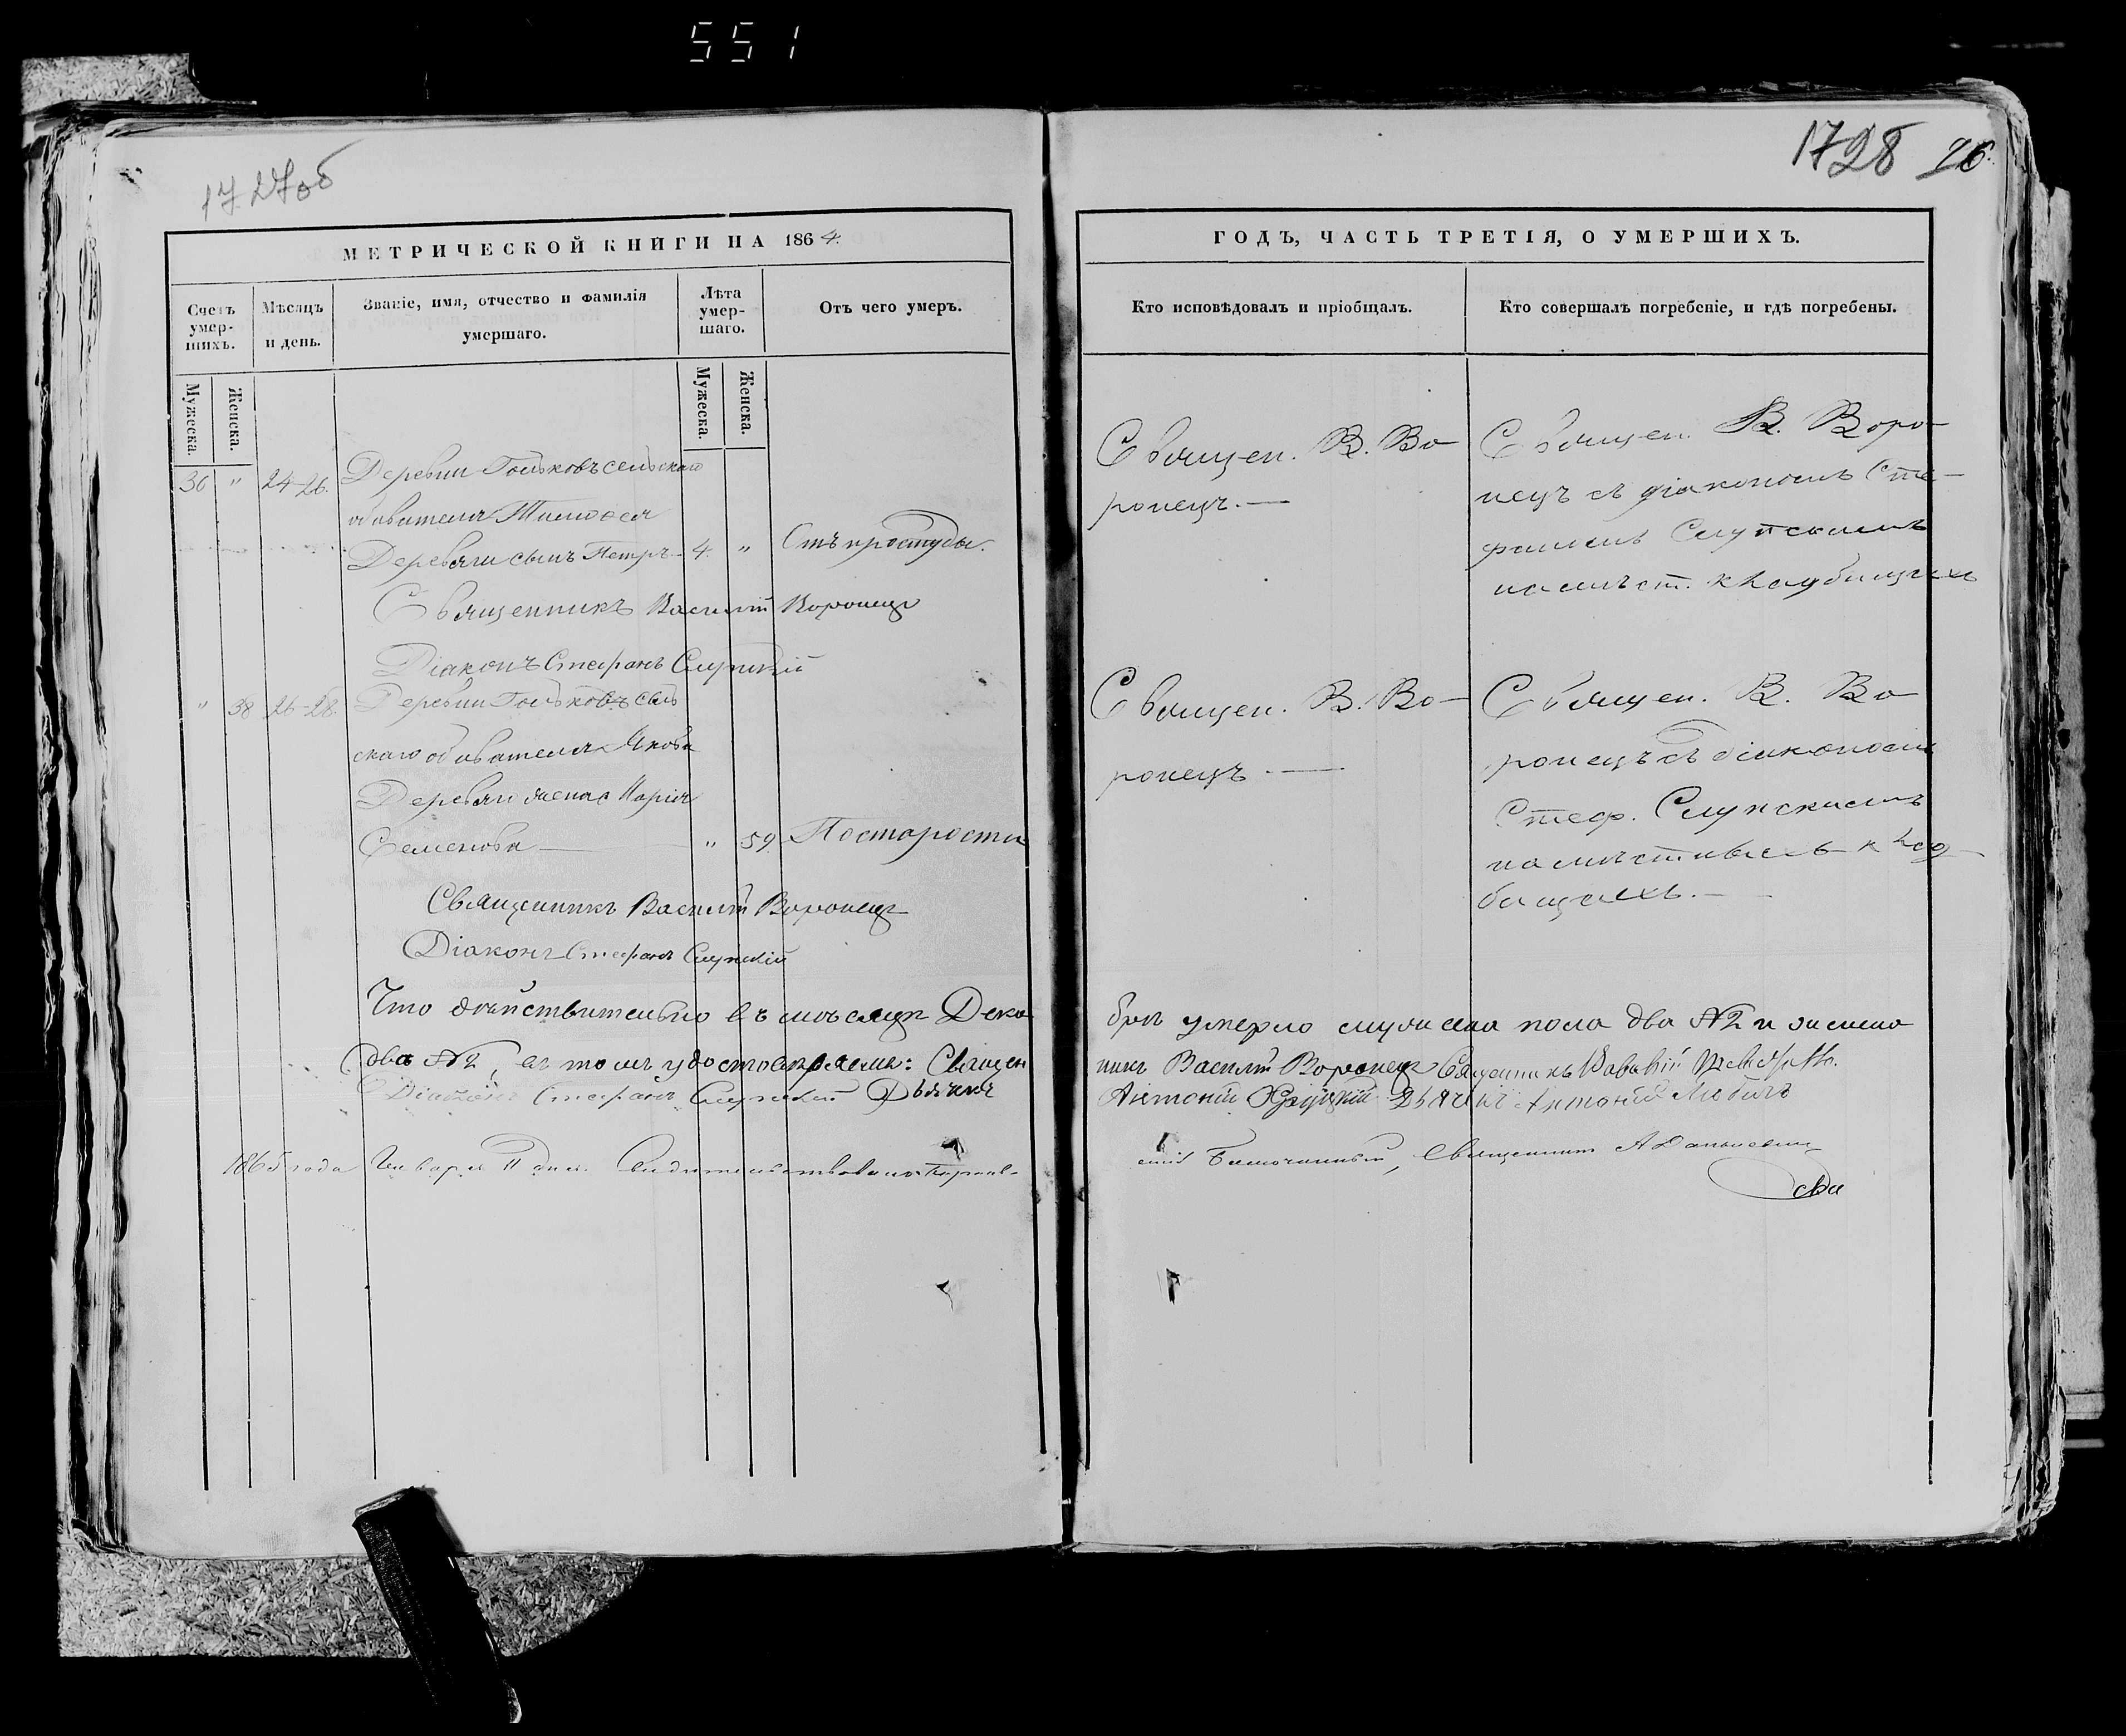 551
1727об
1728 26.
МЕТРИЧЕСКОЙ КНИГИ НА 1864.
Счетъ умер-шихъ.
Мѣсяцъ и день.
Званіе, имя, отчество и фамилія умершаго.
Лѣта умер-шаго.
Отъ чего умеръ.
Мужеска.
Женска.
Мужеска.
Женска.
36 " 24-26. Деревни Гольковъ сельскаго
обывателя Тимофея
Деревяги сынъ Петръ 4. " Отъ простуды.
Священникъ Василій Воронецъ
Діаконъ Стефанъ Слупскій
" 38 26-28. Деревни Гольковъ сель
скаго обывателя Якова
Деревяги жена Марія
Семенова " 59. По старости
Священникъ Василій Воронецъ
Діаконъ Стефанъ Слупскій
Что дѣйствительно въ мѣсяцѣ Дека
два №2, въ томъ удостовѣряемъ: Священ
Діаконъ Стефанъ Слупскій Дьячокъ
1865 года Января 11 дня.
ГОДЪ, ЧАСТЬ ТРЕТІЯ, О УМЕРШИХЪ.
Кто исповѣдовалъ и пріобщалъ.
Кто совершалъ погребеніе, и гдѣ погребены.
Священ. В. Во
ронецъ.
Священ. В. Воро
нецъ съ діакономъ Сте-
фаномъ Слупскимъ
на мѣст. кладбищахъ
Священ. В. Во-
ронецъ
Священ. В. Во
ронецъ съ діакономъ
Стеф. Слупскимъ
на мѣстныхъ клад
бищахъ.
брѣ умерло мужеска пола два №2 и женска
никъ Василій Воронецъ Священникъ
Антоній Дьячекъ Антоній
Благочинный, Священникъ